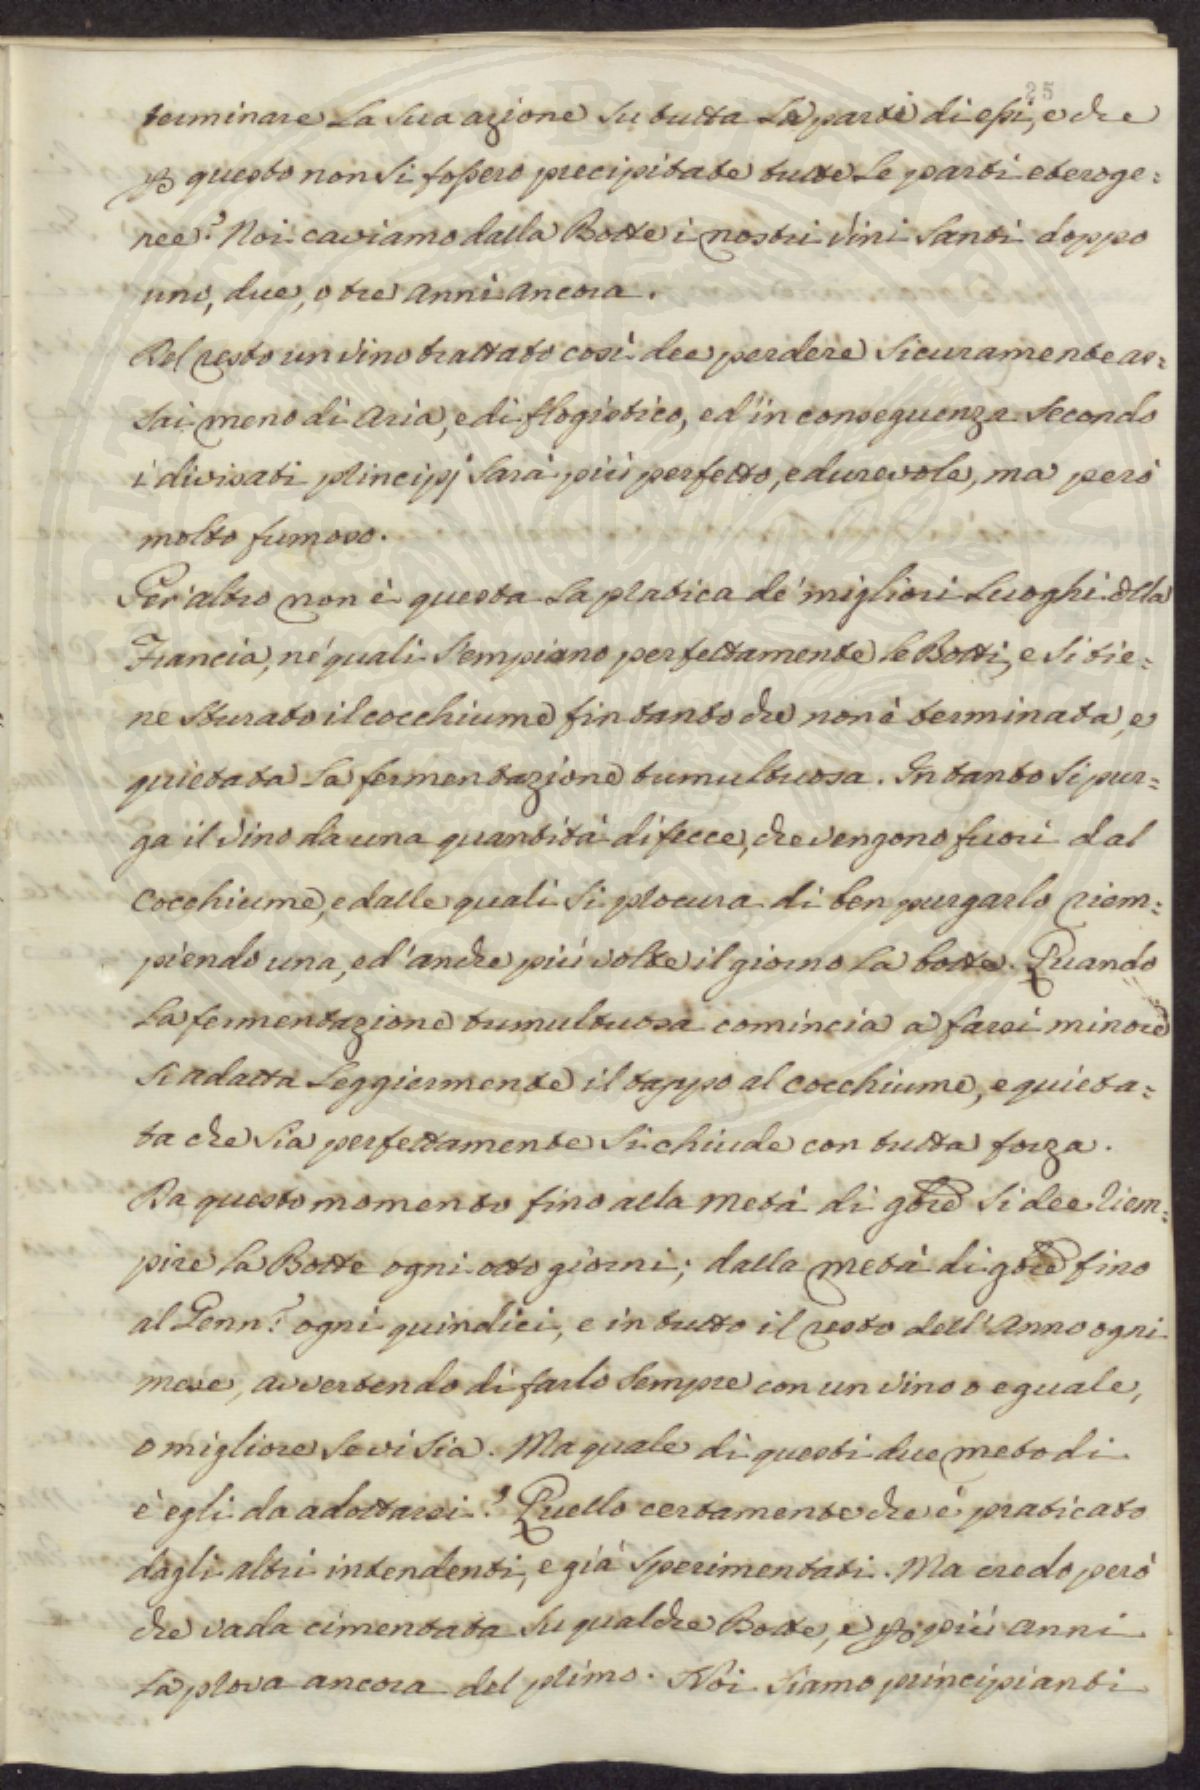 25
terminare la sua azione su tutta le parti di essi, e che
p questo non si fossero precipitate tutte le parti eteroge=
nee? Noi caviamo dalla Botte i nostri Vini Santi doppo
uni, due, o tre anni ancora.
Del resto un vino trattato così dee perdere sicuramente as=
sai meno di Aria, e di flogistico, ed in conseguenza secondo
i divisati principj sarà più perfetto, e durevole, ma però
molto fumoso.
Per altro non è questa la pratica de' migliori Luoghi della
Francia, ne' quali s'empiano perfettamente le Botti, e si tie=
ne sturato il cocchiume fin tanto che non è terminata, e
quietata la fermentazione tumultuosa. Intanto si pur=
ga il Vino da una quantità di fecce, che vengono fuori dal
Cocchiume, e dalle quali si procura di ben purgarlo riem=
piendo una, ed anche più volte il giorno la botte. Quando
la fermentazione tumultuosa comincia a farsi minore
si adatta leggiermente il tappo al cocchiume, e quieta=
ta che sia perfettamente si chiude con tutta forza.
Da questo momento fino alla metà di 9bre si dee riem=
pire la Botte ogni otto giorni; dalla metà di 9bre fino
al Genn.° ogni quindici, e in tutto il resto dell'Anno ogni
mese, avvertendo di farlo sempre con un vino o eguale,
o migliore se vi sia. Ma quale di questi due metodi
è egli da adottarsi? Quello certamente che è praticato
dagli altri intendenti, e già sperimentati. Ma credo però
che vada cimentata su qualche Botte, e p più anni
la prova ancora del primo. Noi siamo principianti